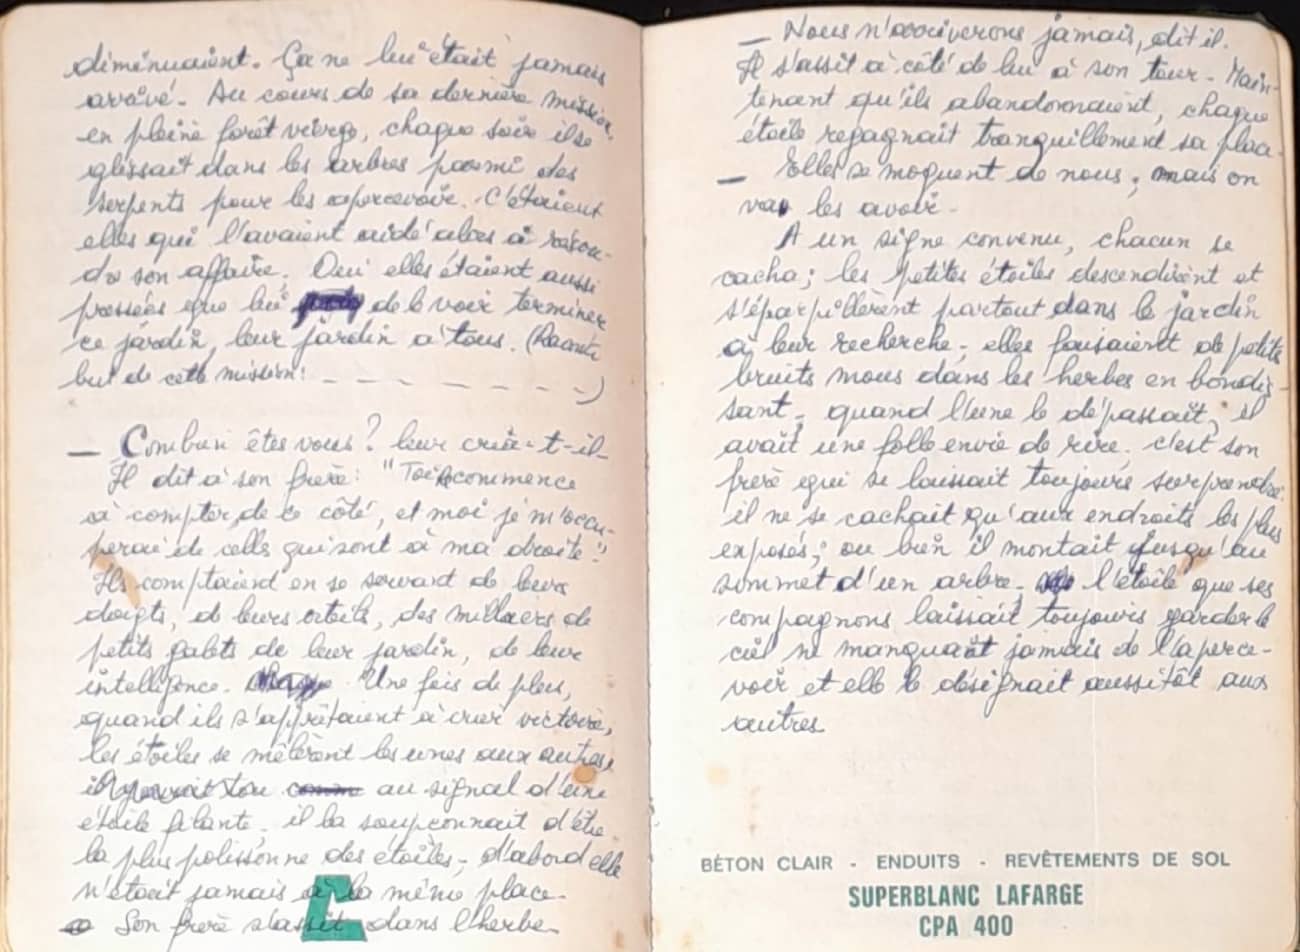 diminuaient. Ça ne lui était jamais
arrivé. Au cours de sa dernière mission,
en pleine forêt vierge, chaque soir il se
glissait dans les arbres parmi des
serpents pour les apercevoir. C'étaient
elles qui l'avaient aidé alors à résou-
dre son affaire. Oui elles étaient aussi
pressées que lui de le voir terminer
ce jardin, leur jardin à tous. (Raconter
but de cette mission: _ _ _ _ _ _ _ _)
— Combien êtes vous? leur cria-t-il-
Il dit à son frère: "Toi commence
à compter de ce côté, et moi je m'occu-
perai de celles qui sont à ma droite"
Ils comptaient en se servant de leurs
doigts, de leurs orteils, des milliers de
petits galets de leur jardin, de leur
intelligence. Une fois de plus,
quand ils s'apprêtaient à crier victoire,
les étoiles se mêlèrent les unes aux autres,
au signal d'une
étoile filante. il la soupçonnait d'être
la plus polissonne des étoiles, d'abord elle
n'était jamais à la même place.
Son frère s'assit dans l'herbe
— Nous n'arriverons jamais, dit il.
Il s'assit à côté de lui à son tour. Main-
tenant qu'ils abandonnaient, chaque
étoile regagnait tranquillement sa place.
— Elles se moquent de nous, mais on
va les avoir.
A un signe convenu, chacun se
cacha; les petites étoiles descendirent et
s'éparpillèrent partout dans le jardin
à leur recherche, elles faisaient de petits
bruits mous dans les herbes en bondis-
sant. quand l'une le dépassait, il
avait une folle envie de rire. c'est son
frère qui se laissait toujours surprendre.
il ne se cachait qu'aux endroits les plus
exposés; ou bien il montait jusqu'au
sommet d'un arbre. l'étoile que ses
compagnons laissait toujours garder le
ciel ne manquait jamais de l'aperce-
voir et elle le désignait aussitôt aux
autres
BÉTON CLAIR - ENDUITS - REVÊTEMENTS DE SOL
SUPERBLANC LAFARGE
CPA 400